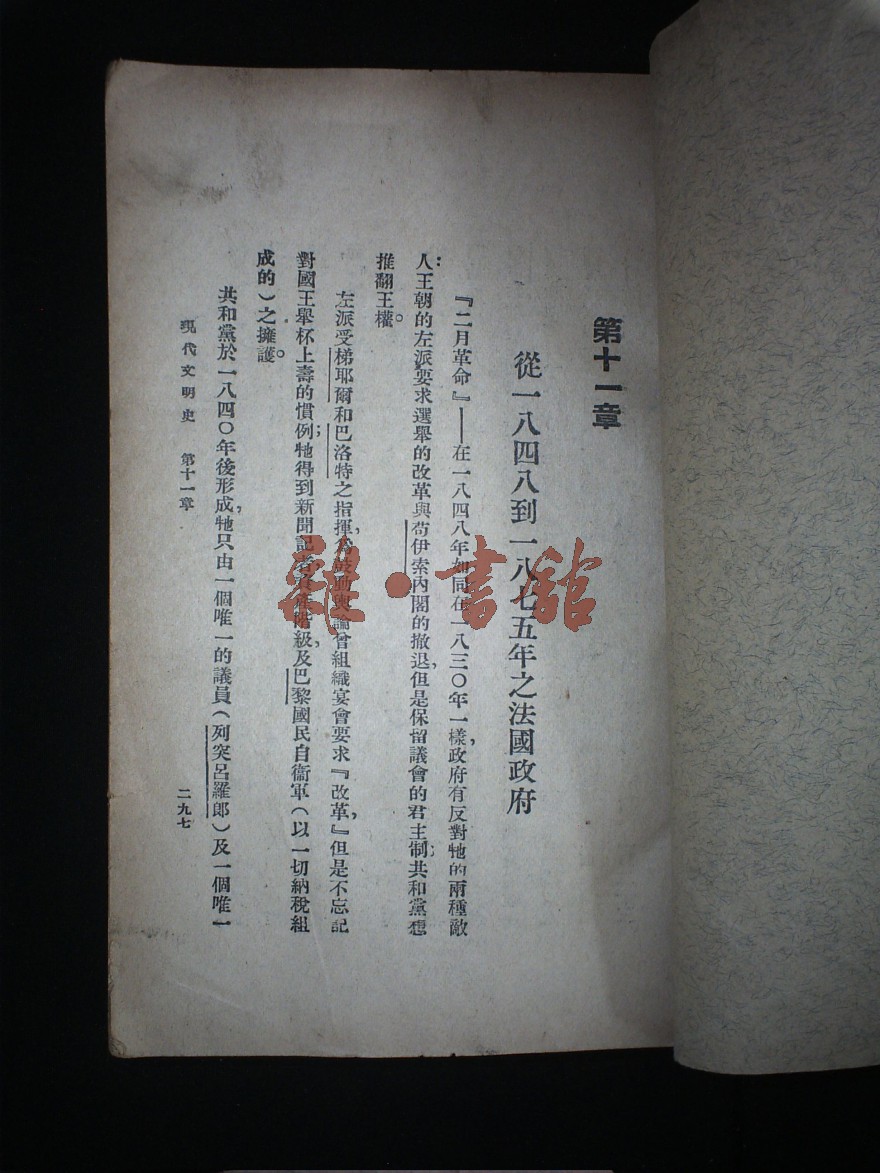 第十一章
從一八四八到一八七五年之法國政府
『二月革命』——在一八四八年如同在一八三〇年一樣,政府有反對牠的兩種敵
人:王朝的左派要求選舉的改革與苟伊索內閣的撤退,但是保留議會的君主制;共和黨想
推翻王權。
左派受梯耶爾和巴洛特之指揮,為鼓動輿論曾組織宴會要求『改革,』但是不忘記
對國王舉杯上壽的慣例;牠得到新聞記者,資產階級,及巴黎國民自衞軍(以一切納稅組
成的)之擁護。
共和黨於一八四〇年後形成,牠只由一個唯一的議員(列突呂羅郎)及一個唯一
現代文明史 第十一章
二九七
雜·書館